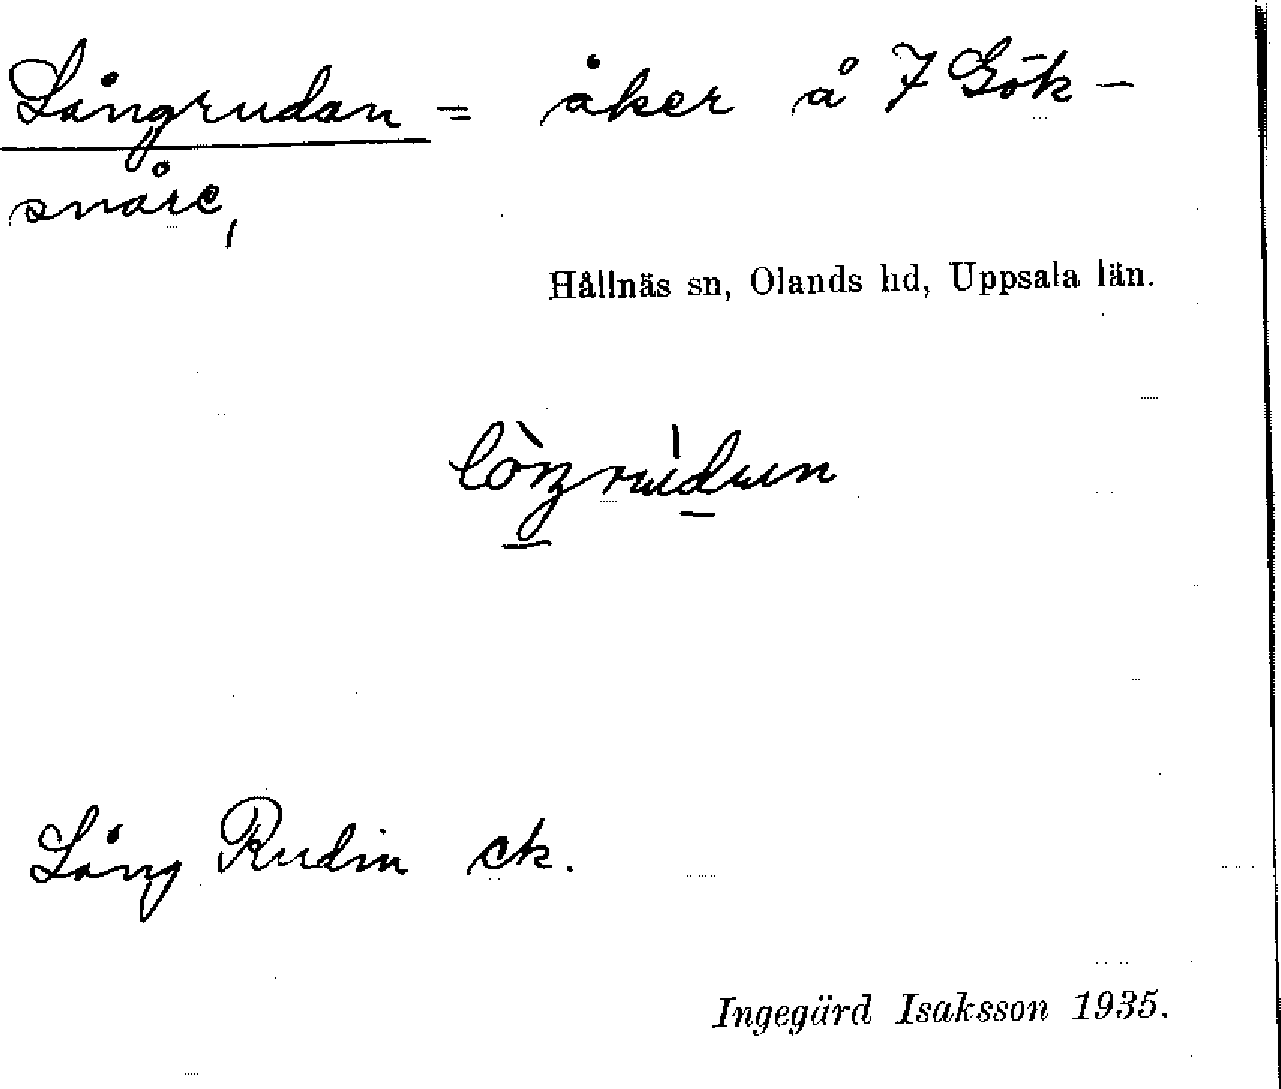 Långrudan = åker å 7 Gök-
snåre,
Hållnäs sn, Olands hd, Uppsala län.
Lång Rudin ek.
Ingegärd Isaksson 1935.